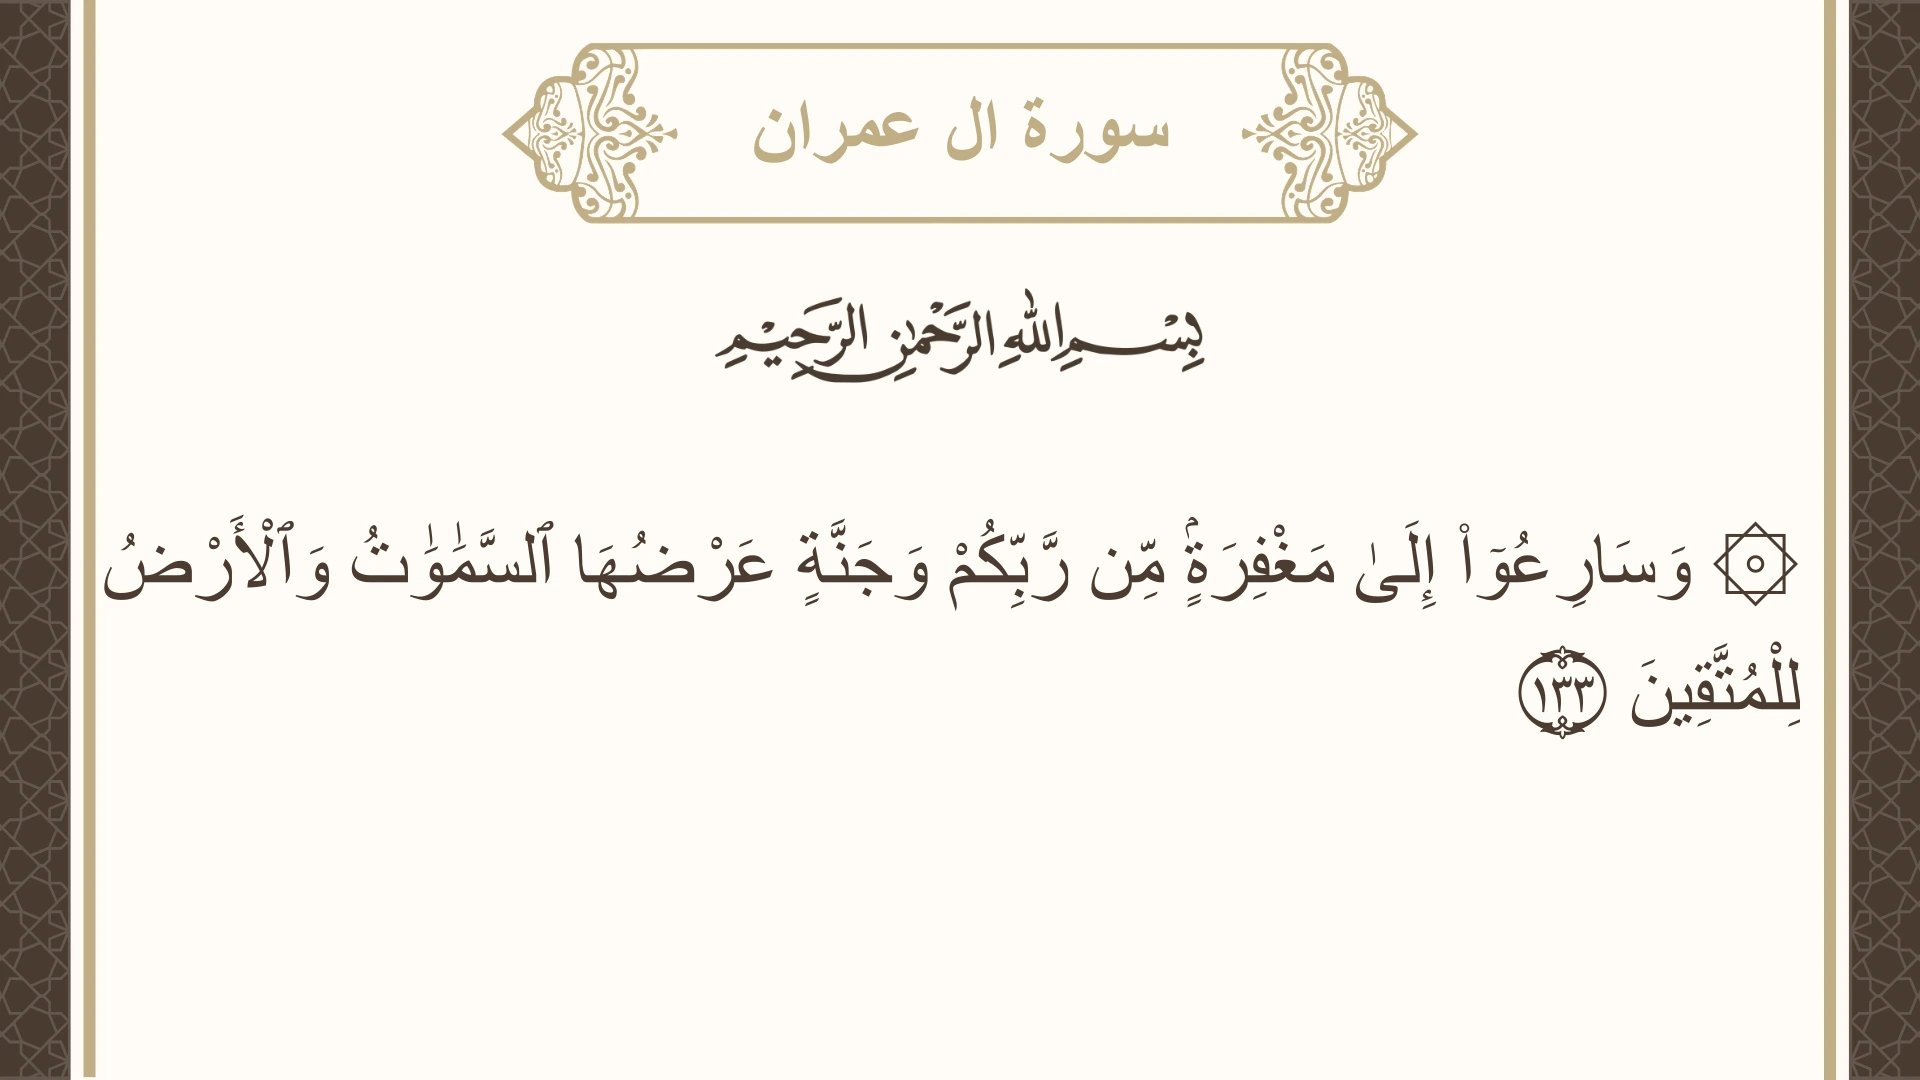 سورة ال عمران
بِسْمِ اللهِ الرَّحْمٰنِ الرَّحِيْمِ
۞ وَسَارِعُوٓا۟ إِلَىٰ مَغْفِرَةٍۢ مِّن رَّبِّكُمْ وَجَنَّةٍ عَرْضُهَا ٱلسَّمَٰوَٰتُ وَٱلْأَرْضُ
لِلْمُتَّقِينَ ١٣٣